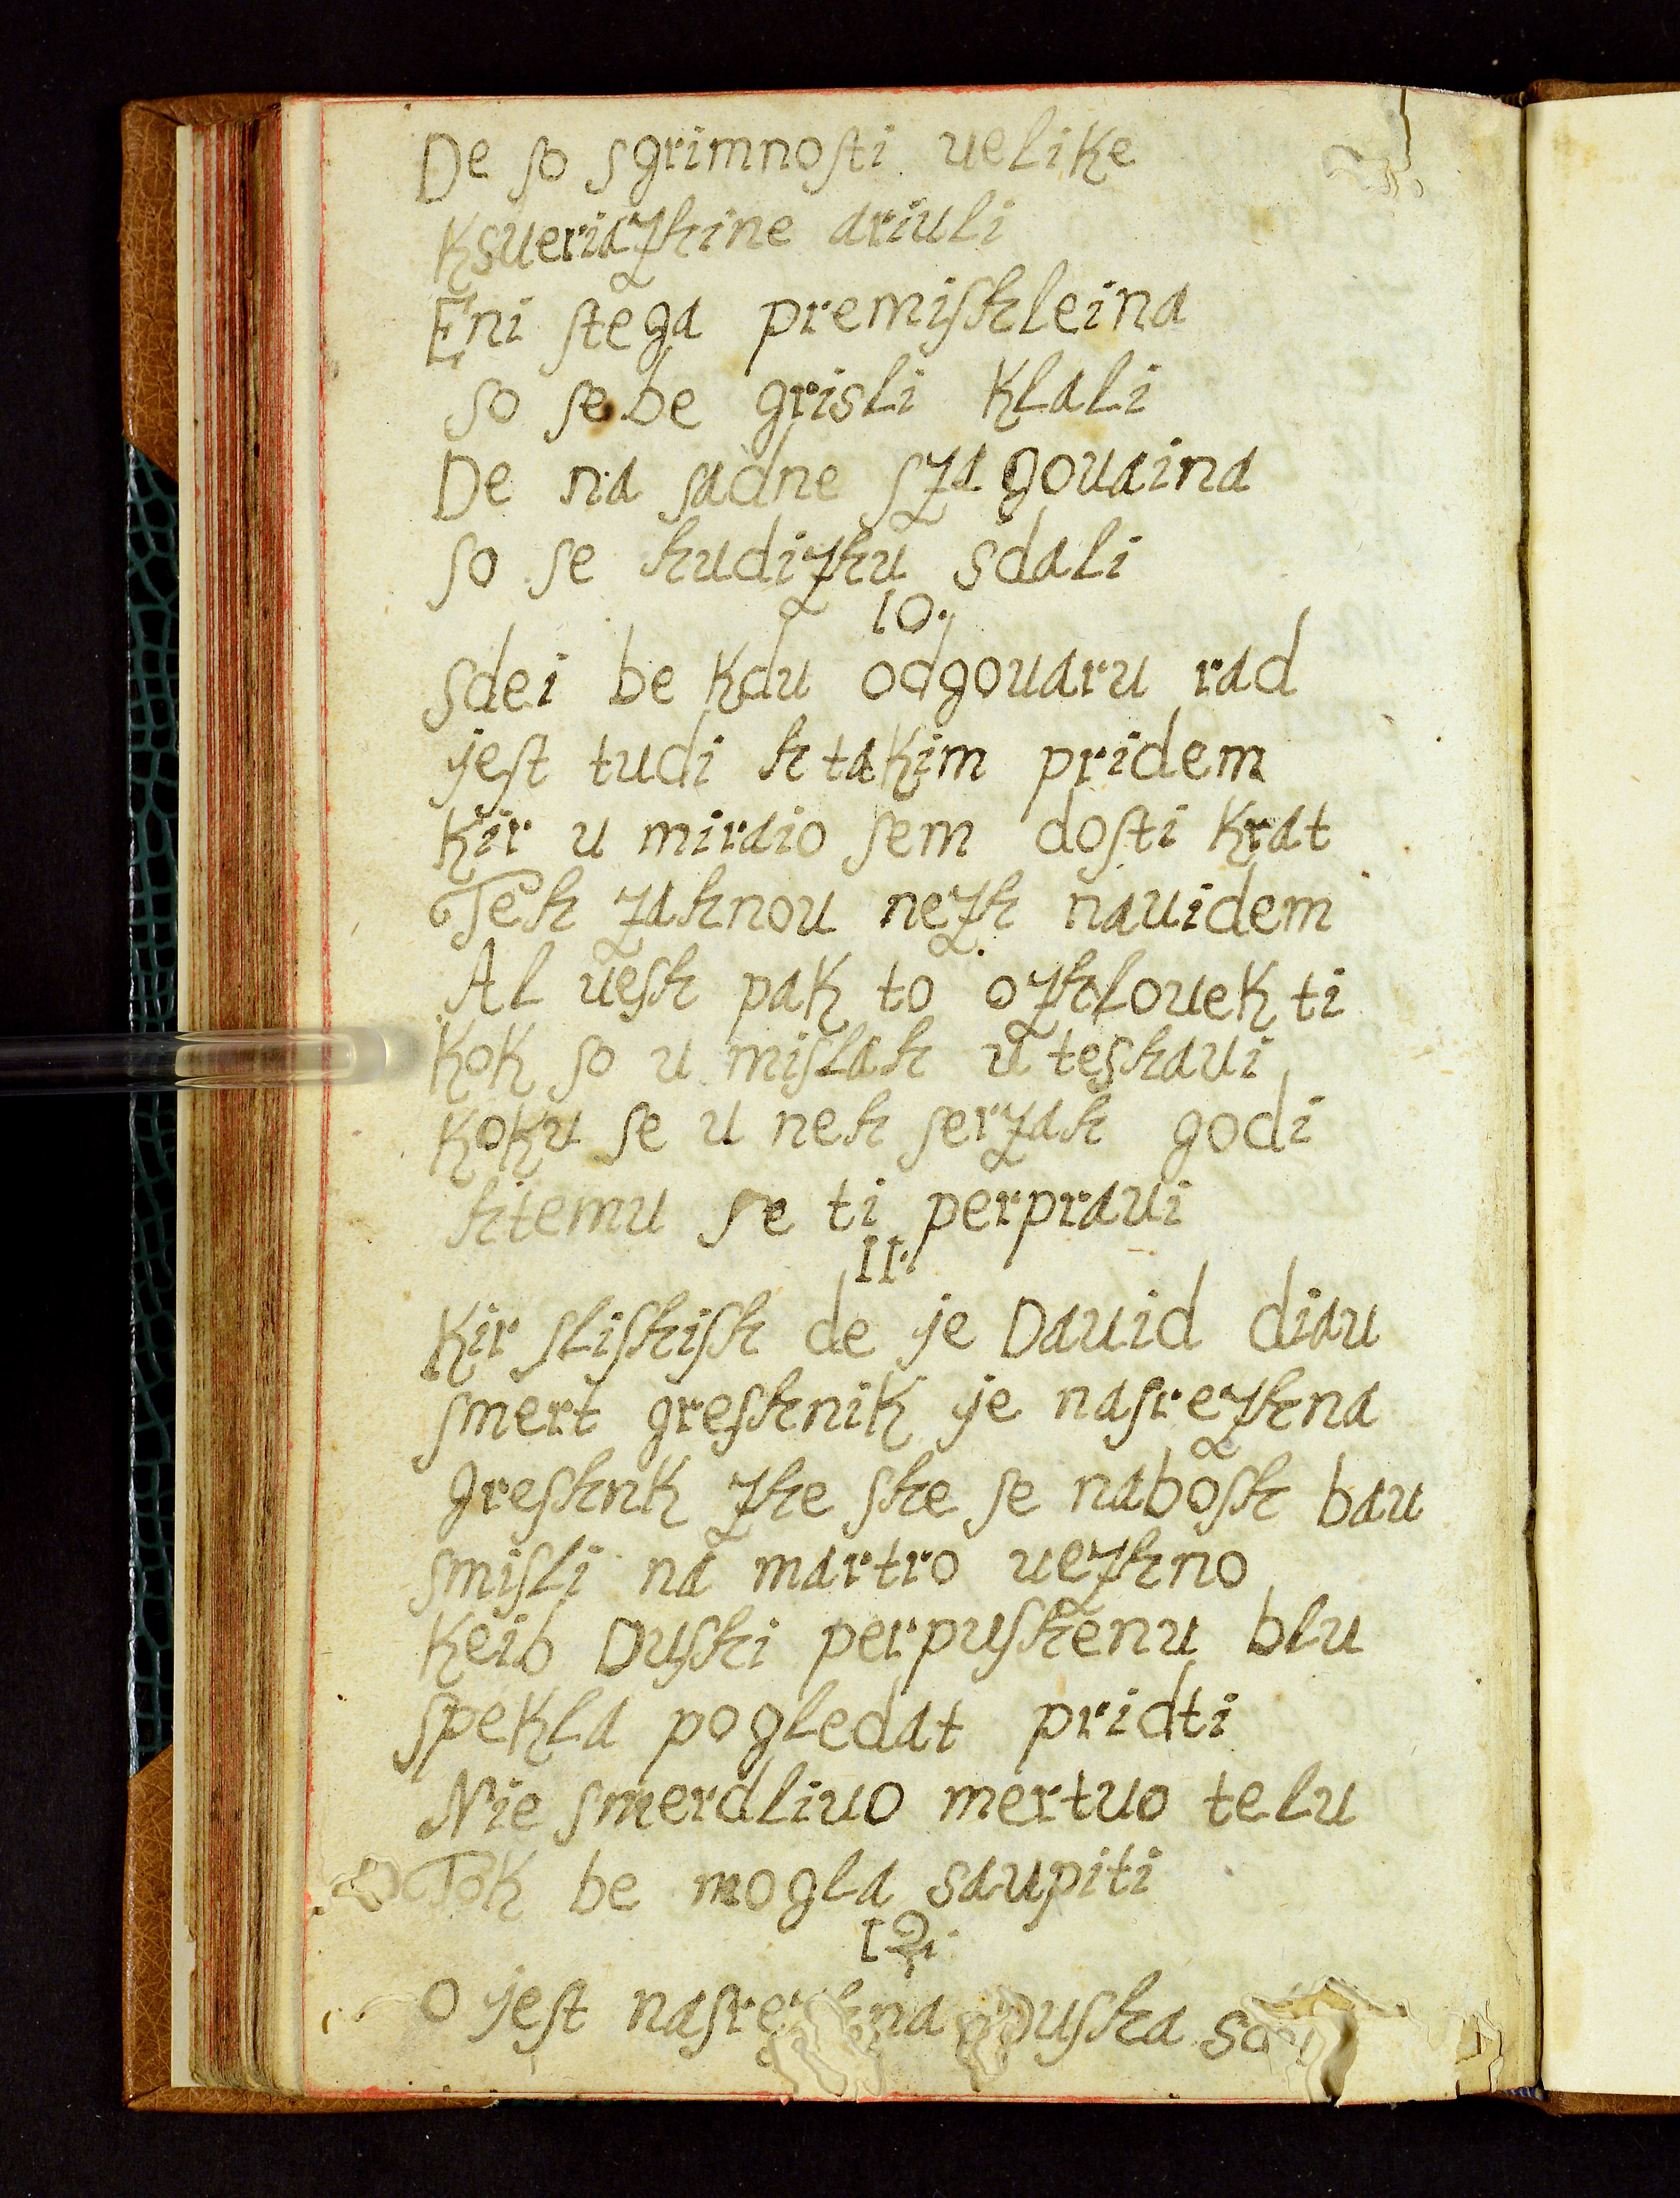 De so sgrimnoſti uelike
Ksueriazhine driuli
Eni ſtega premiſhleina
so ſebe grisli klali
De na sadne szagouaina
so ſe hudizhu sdali
10.
sdei be kdu odgouaru rad
yeſt tudi h takim pridem
Kir u miraio ſem doſti krat
Teh zahnou nezh nauidem
Al ueſh pak to ozhlouek ti
Kok so u miſlah u teshaui
Koku ſe u neh ſerzah godi
htemu ſe ti perpraui
11.
Kir sliſhiſh de ye Dauid diau
smert greſhnik ye nasrezhna
greſhnk zhe ſhe ſe naboſh bau
smiſli na martro uezhno
Keib Duſhi perpuſhenu blu
spekla pogledat pridti
Nie smerdliuo mertuo telu
Tok be mogla saupiti
12.
O yeſt Duſha